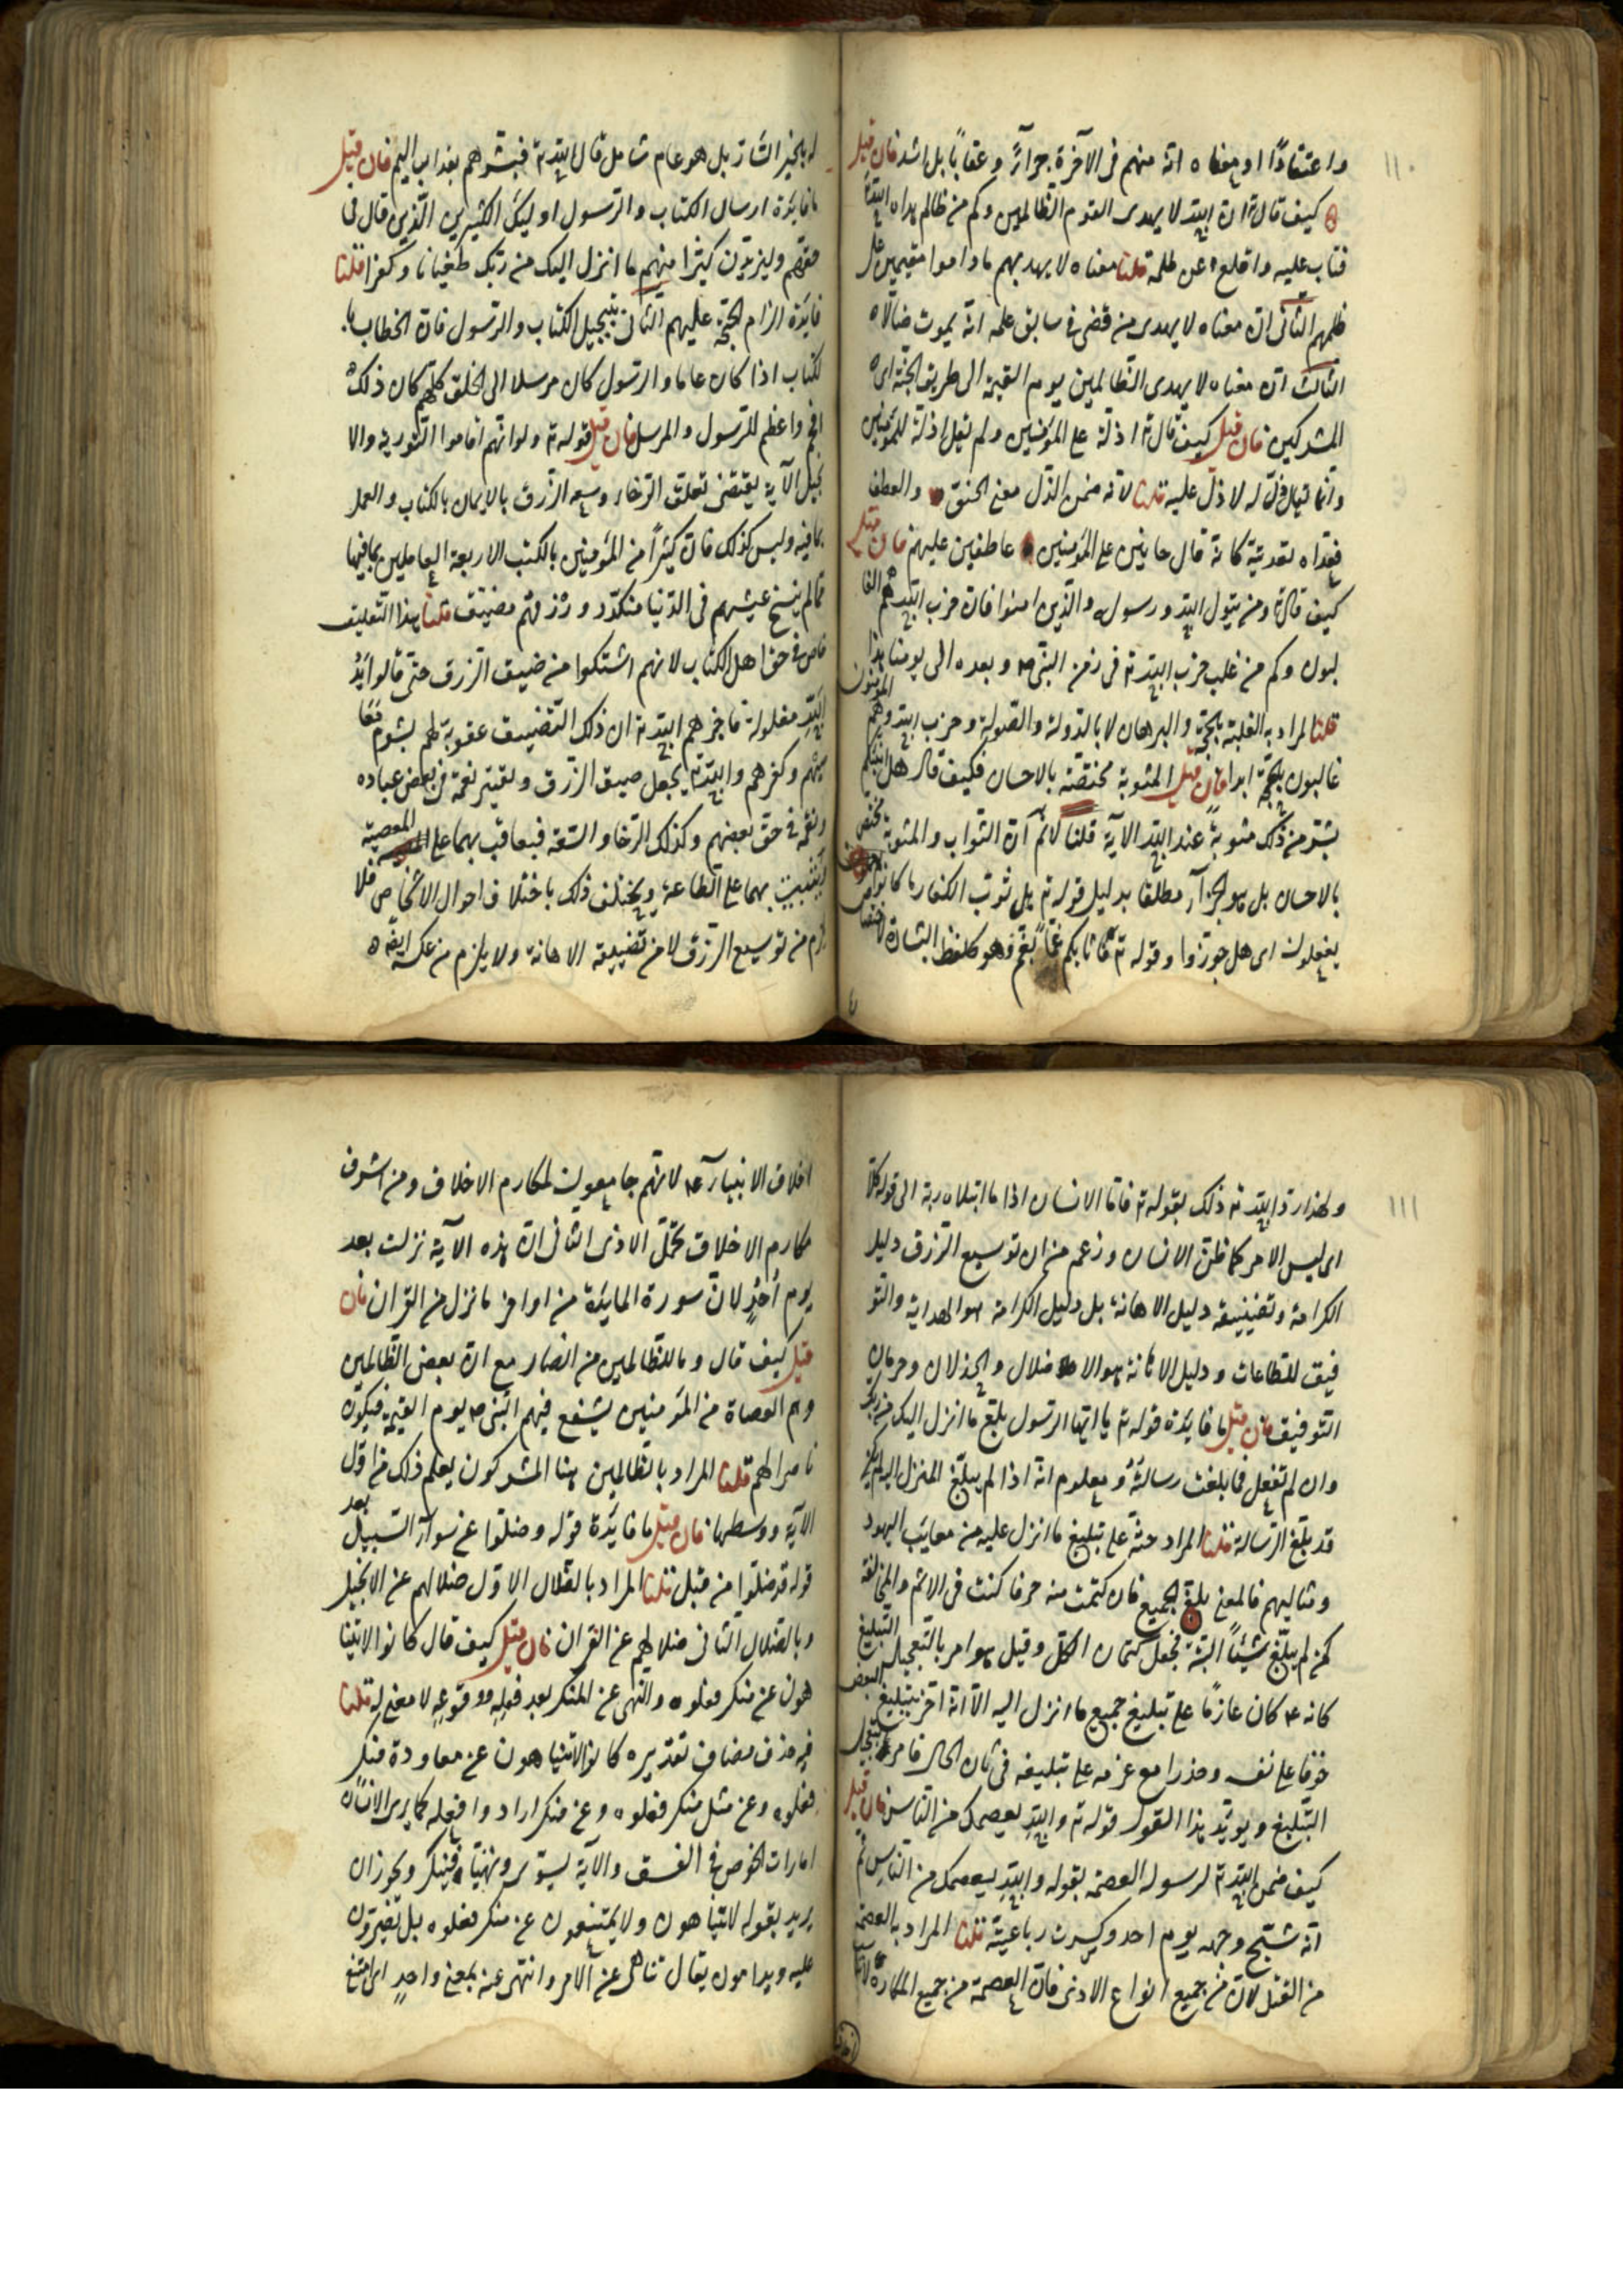 ١١٠
واعتقادًا او معناه انه منهم فى الآخرة جزآءً وعقابًا بل اشد فان قيل
كيف قال تم ان الله لا يهدى القوم الظالمين وكم من ظالم هداه الله تم
فتاب عليه واقلع عن ظلمه قلنا معناه لا يهديهم ما داموا مقيمين على
ظلمهم الثانى ان معناه لا يهدى من قضى فى سابق علمه انه يموت ضالا
الثالث ان معناه لا يهدى الظالمين يوم القيمة الى طريق الجنة اى
المشركين فان قيل كيف قال تم اذلة على المؤمنين ولم يقل اذلة للمؤمنين
وانما يقال ذل له لا ذل عليه قلنا لانه ضمن الذل معنى الحنو والعطف
فعداه تعديته كانه قال حانين على المؤمنين عاطفين عليهم فان قيل
كيف قال تم ومن يتول الله ورسوله والذين امنوا فان حزب الله هم الغا
لبون وكم من غلب حزب الله تم فى زمن النبى ص وبعده الى يومنا هذا
قلنا المراد به الغلبة بالحجة والبرهان لا بالدولة والصولة وحزب الله وهم المؤمنون
غالبون بالحجة ابدا فان قيل المثوبة مختصة بالاحسان فكيف قال هل انبئكم
بشر من ذلك مثوبةً عند الله الآية قلنا لانم ان الثواب والمثوبة مختص
بالاحسان بل هو الجزآء مطلقا بدليل قوله تم هل ثوب الكفار ما كانوا
يفعلون اى هل جوزوا وقوله تم فاثابكم غمًا بغم فهو كلفظ البشارة لا اختصاص
له بالخير السار بل هو عام شامل قال الله تم فبشرهم بعذاب اليم فان قيل
ما فايدة ارسال الكتاب والرسول اوليك الكثيرين الذين قال فى
حقهم وليزيدن كثيرا منهم ما انزل اليك من ربك طغيانا وكفرا قلنا
فايدة الزام الحجة عليهم الثانى تبجيل الكتاب والرسول فان الخطاب با
لكتاب اذا كان عاما والرسول كان مرسلا الى الخلق كلهم كان ذلك
افخم واعظم للرسول والمرسل فان قيل قوله تم ولو انهم اقاموا التورية والا
نجيل الآية يقتضى تعلق الرخاء وسعة الرزق بالايمان بالكتاب والعمل
بما فيه وليس كذلك فان كثيرًا من المؤمنين بالكتب الاربعة العاملين بما فيها
مما لم ينسخ عيشهم فى الدنيا منكدر ورزقهم مضيق قلنا هذا التعليق
خاص فى حق اهل الكتاب لانهم اشتكوا من ضيق الرزق حتى قالوا يد
الله مغلولة فاخبرهم الله تم ان ذلك التضييق عقوبة لهم بشوم معا
صيهم وكفرهم والله تم يجعل ضيق الرزق وتقتير نعمة فى بعض عباده
ونقمة فى حق بعضهم وكذلك الرخاء والسعة فيعاقب بهما على المعصية
ويثيب بهما على الطاعة ويختلف ذلك باختلاف احوال الاشخاص فلا
يلزم من توسيع الرزق لا من تضييقه الاهانة ولا يلزم من عكسه ايضه
١١١
ولهذا رد الله تم ذلك بقوله تم فاما الانسان اذا ما ابتلاه ربه الى قوله كلا
اى ليس الامر كما ظن الانسان وزعم من ان توسيع الرزق دليل
الكرامة وتضييقه دليل الاهانة بل دليل الكرامة هو الهداية والتو
فيق للطاعات ودليل الاهانة هو الاضلال والخذلان وحرمان
التوفيق فان قيل ما فايدة قوله تم يا ايها الرسول بلغ ما انزل اليك من ربك
وان لم تفعل فما بلغت رسالته ومعلوم انه اذا لم يبلغ المنزل اليه لم يكن
قد بلغ الرسالة قلنا المراد حثه على تبليغ ما انزل عليه من معايب اليهود
ومثالبهم فالمعنى بلغ الجميع فان كتمت منه حرفا كنت فى الاثم والمخالفة
كمن لم يبلغ شيئًا البتة فجعل كتمان الكل وقيل هو امر بالتعجيل التبليغ
كانه ع م كان عازمًا على تبليغ جميع ما انزل اليه الا انه اخر تبليغ البعض
خوفا على نفسه وحذرا مع عزمه على تبليغه فى ثان الحال فامر بتعجيل
التبليغ ويويد هذا القول قوله تم والله يعصمك من الناس فان قيل
كيف ضمن الله تم لرسوله العصمة بقوله والله يعصمك من الناس ثم
انه شج وجهه يوم احد وكسرت رباعيته قلنا المراد به العصمة
من القتل لا من جميع انواع الاذى فان العصمة من جميع المكاره
اخلاق الانبيآء ع م لانهم جامعون لمكارم الاخلاق ومن اشرف
مكارم الاخلاق تحمل الاذى الثانى ان هذه الآية نزلت بعد
يوم اُحُدٍ لان سورة المايدة من اواخر ما نزل من القران فان
قيل كيف قال وما للظالمين من انصار مع ان بعض الظالمين
وهم العصاة من المؤمنين يشفع فيهم النبى ص يوم القيمة فيكون
ناصرا لهم قلنا المراد بالظالمين هنا المشركون يعلم ذلك من اول
الآية ووسطها فان قيل ما فايدة قوله وضلوا عن سوآء السبيل بعد
قوله قد ضلوا من قبل قلنا المراد بالضلال الاول ضلالهم عن الانجيل
وبالضلال الثانى ضلالهم عن القران فان قيل كيف قال كانوا لا يتنا
هون عن منكر فعلوه والنهى عن المنكر بعد فعلِهِ ووقوعِهِ لا معنى له قلنا
فيه حذف مضاف تقديره كانوا لا يتناهون عن معاودة منكر
فعلوه وعن مثل منكر فعلوه وعن منكر ارادوا فعله كما يرى الانسان
امارات الخوض فى الفسق والآية يسوى وتهيأ فينكر ويجوز ان
يريد بقوله لا يتناهون ولا يمتنعون عن منكر فعلوه بل يصرون
عليه ويداومون يقال تناهى عن الامر وانتهى عنه بمعنى واحدٍ اى امتنع